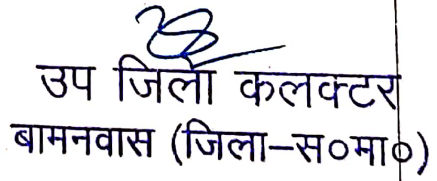 उप जिला कलक्टर
बामनवास (जिला–स०मा०)